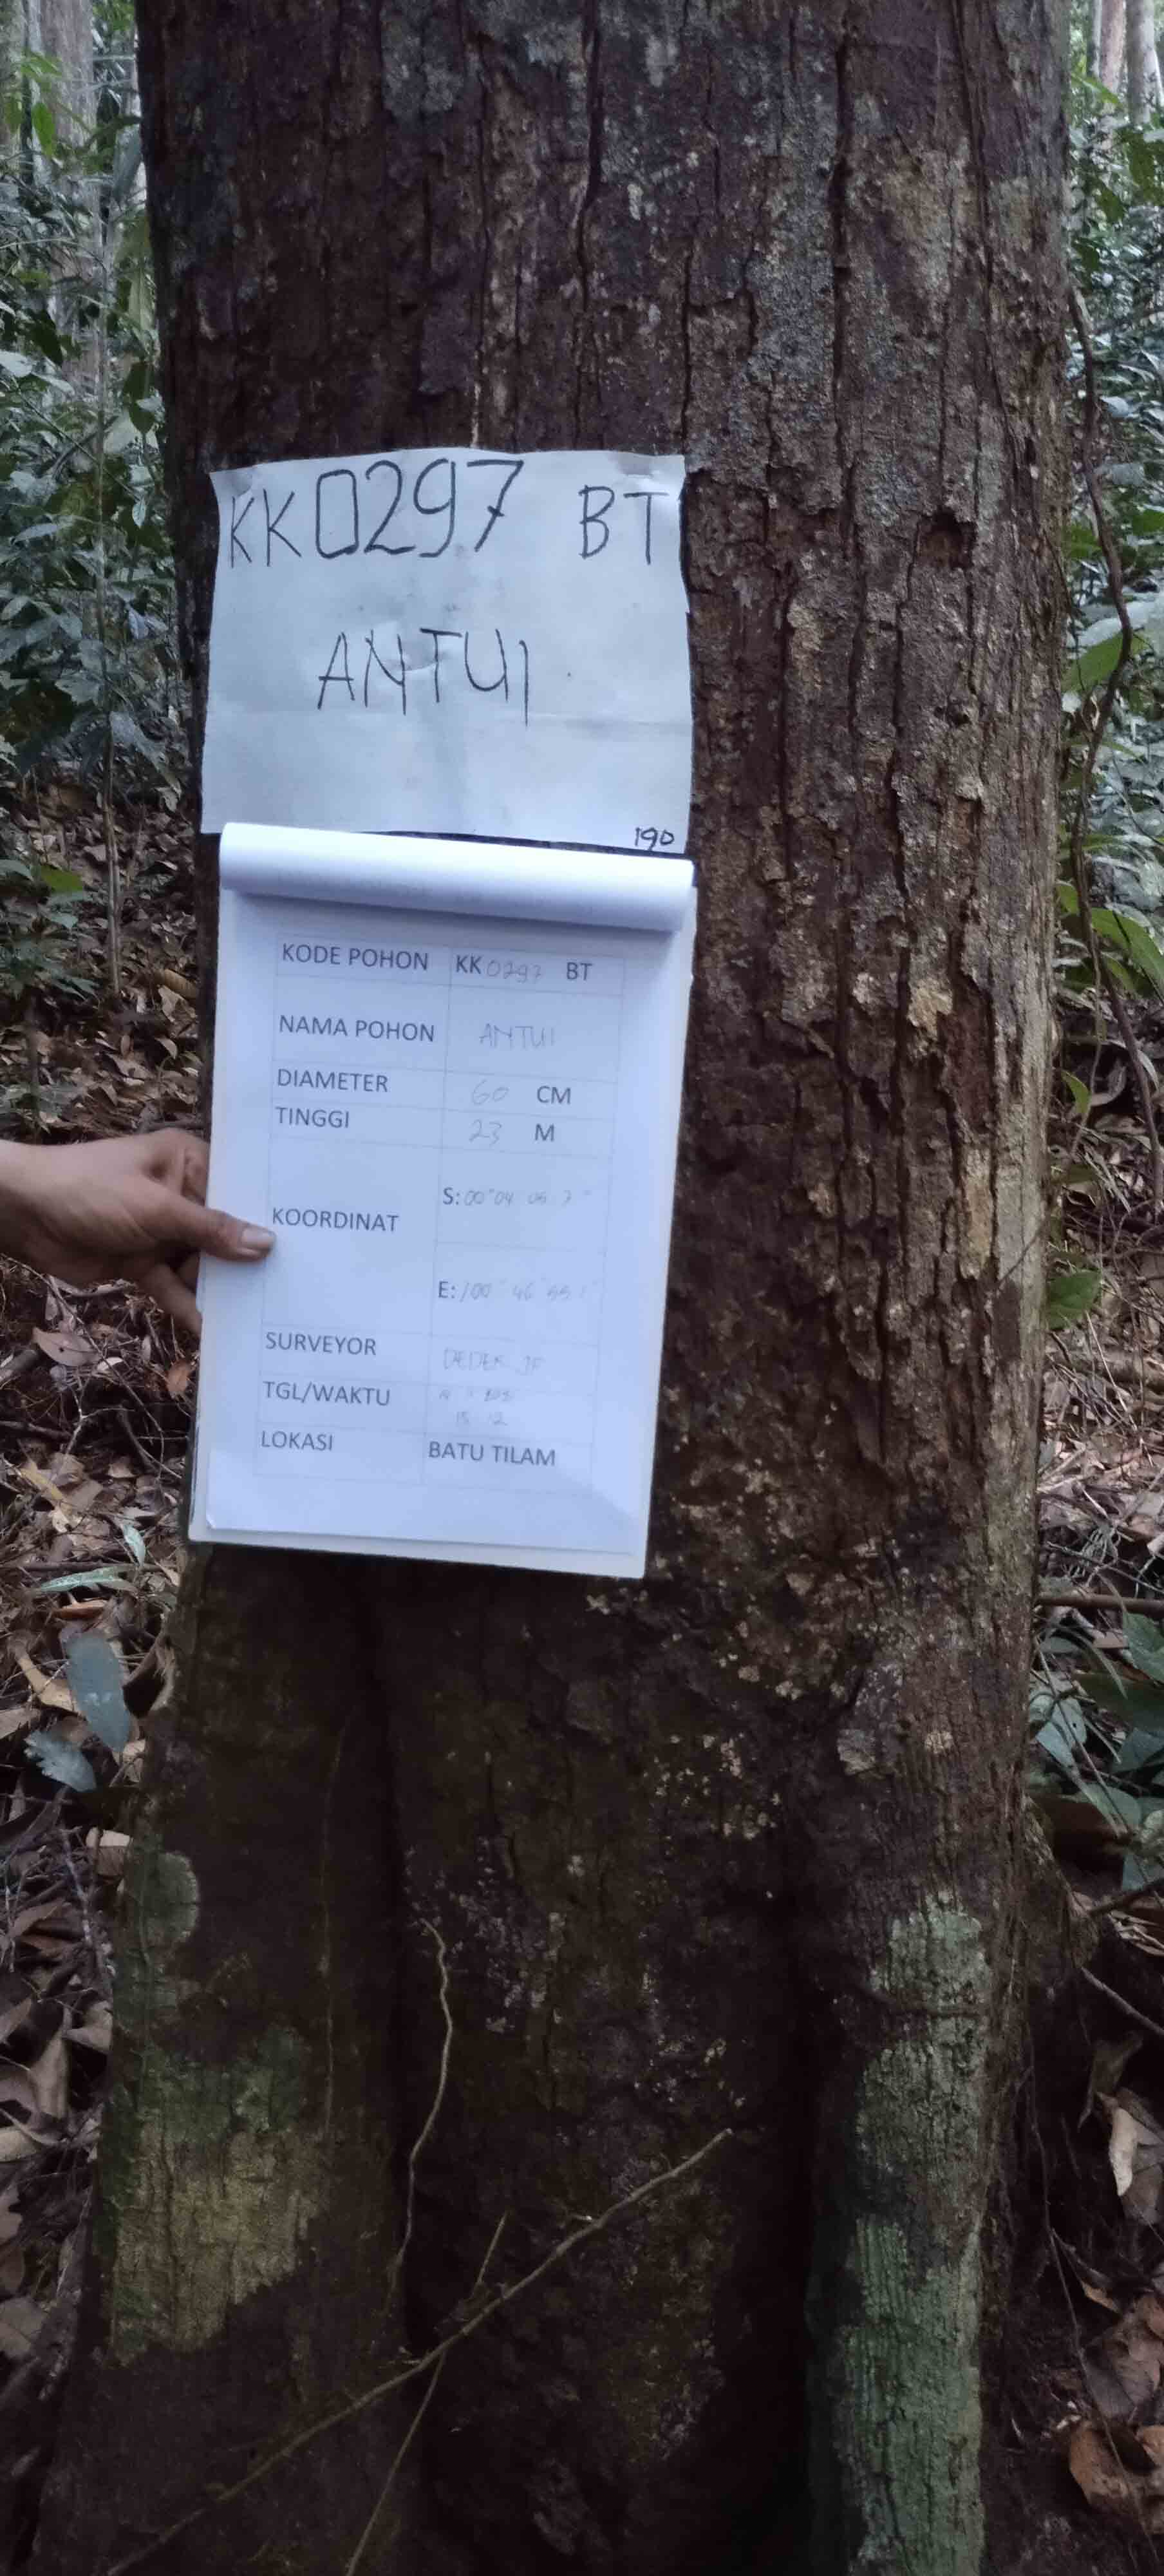 KK0297 BT
ANTUI
190
KODE POHON KK 0297 BT
NAMA POHON ANTUI
DIAMETER 60 CM
TINGGI 23 M
KOORDINAT
S: 00° 04 05 7"
E: 100° 46 55
SURVEYOR DEDEK
TGL/WAKTU
LOKASI BATU TILAM